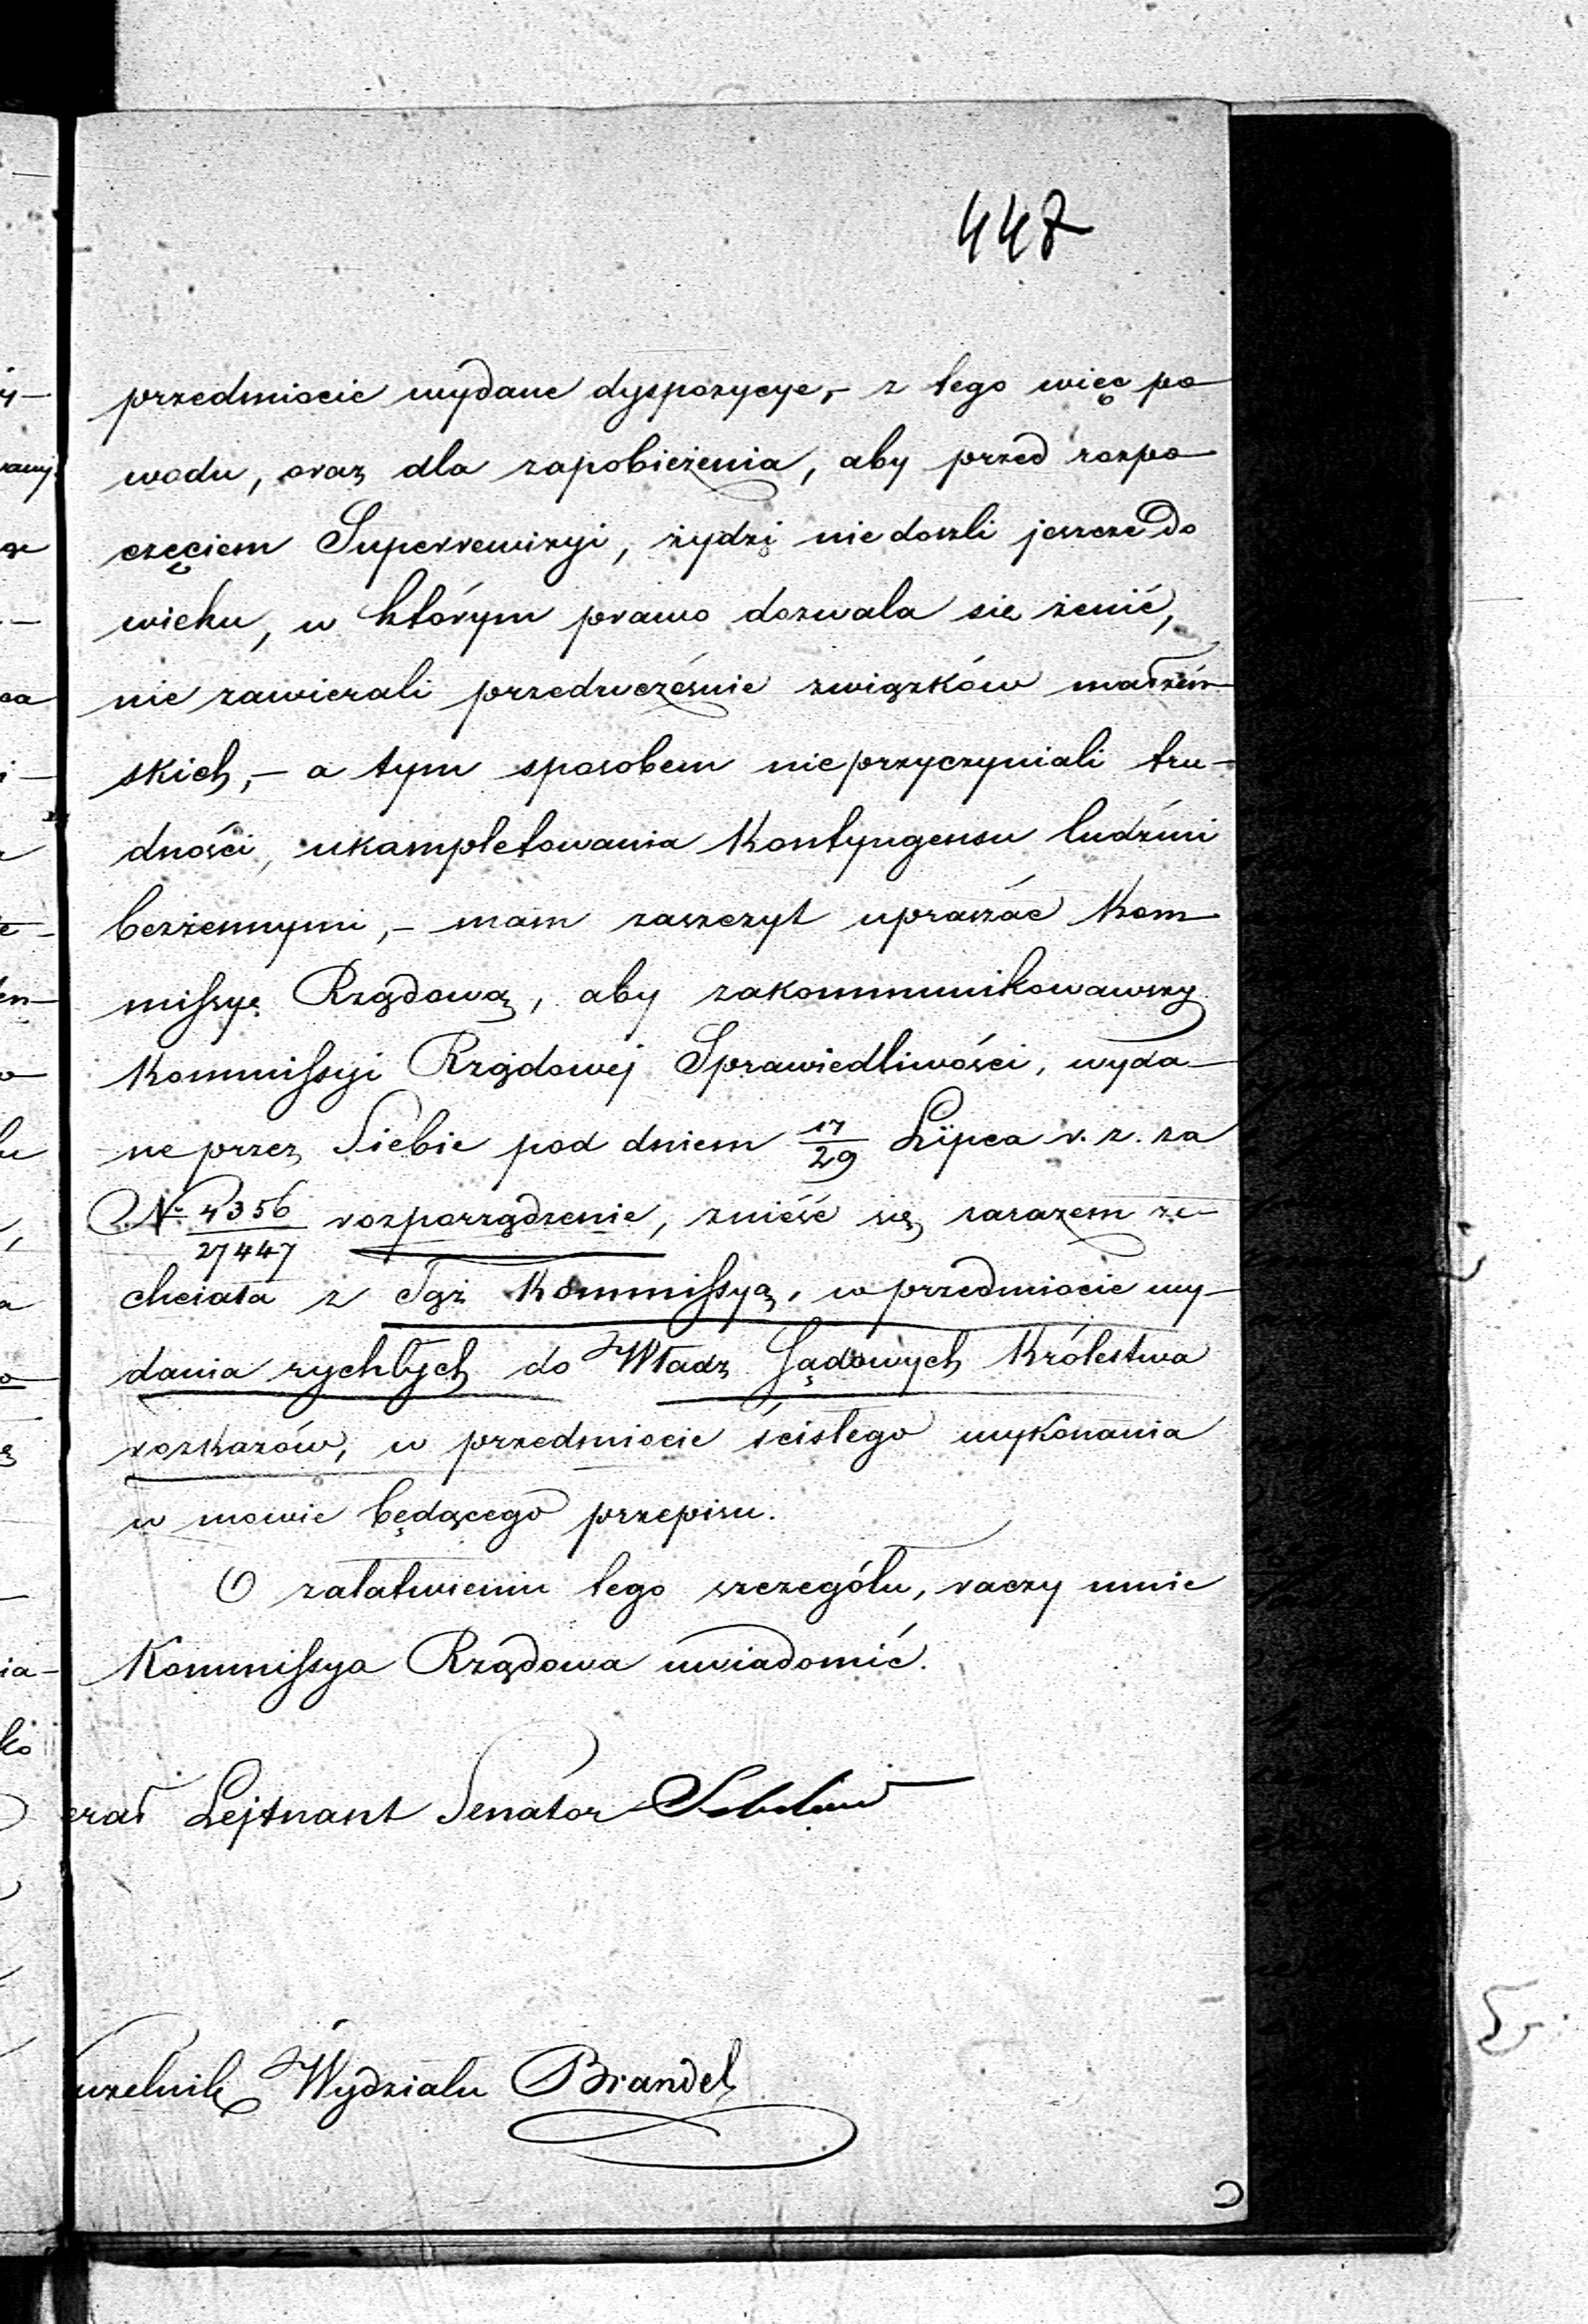 447
przedmiocie wydane dyspozycye,- z tego więc po-
wodu, oraz dla zapobieżenia, aby przed rozpo-
częciem Superrewizyi, żydzi niedoszli jeszcze do
wieku, w którym prawo dozwala się żenić,
nie zawierali przedwcześnie związków małżeń-
skich,- a tym sposobem nieprzyczyniali tru-
dności, ukompletowania Kontyngensu ludźmi
bezżennymi,- mam zaszczyt upraszać Kom-
missyę Rządową, aby zakommunikowawszy
Kommissyi Rządowéj Sprawiedliwości, wyda-
ne przez Siebie pod dniem 17/29 Lipca r. z. za
Nr 4356/27447 rozporządzenie, znieść się zarazem ze-
chciała z Tąż Kommissyą, w przedmiocie wy-
dania rychłych do Władz Sądowych Królestwa
rozkazów, w przedmiocie ścisłego wykonania
w mowie będącego przepisu.
O załatwieniu tego szczegółu, raczy mnie
Kommissya Rządowa uwiadomić.
erał Lejtnant Senator
czelnik Wydziału Brandel